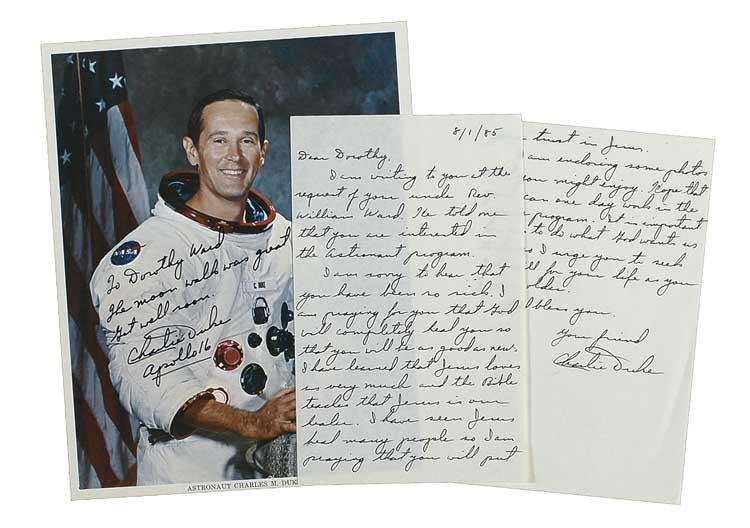 NASA
C. DUKE
To Dorothy Ward
The moon walk was great
Get well soon.
Charlie Duke
Apollo 16
ASTRONAUT CHARLES M. DUK
8/1/85
Dear Dorothy,
I am writing to you at the
request of your uncle Rev.
William Ward. He told me
that you are interested in
the astronaut program.
I am sorry to hear that
you have been so sick. I
am praying for you that God
will completely heal you so
that you will be as good as new.
I have learned that Jesus loves
us very much and the Bible
teaches that Jesus is our
healer. I have seen Jesus
heal many people so I am
praying that you will put
trust in Jesus.
am enclosing some photos
you might enjoy. Hope that
can one day work in the
program. It is important
to do what God wants us
I urge you to seek
for your life as you
bless you.
Your friend
Charlie Duke